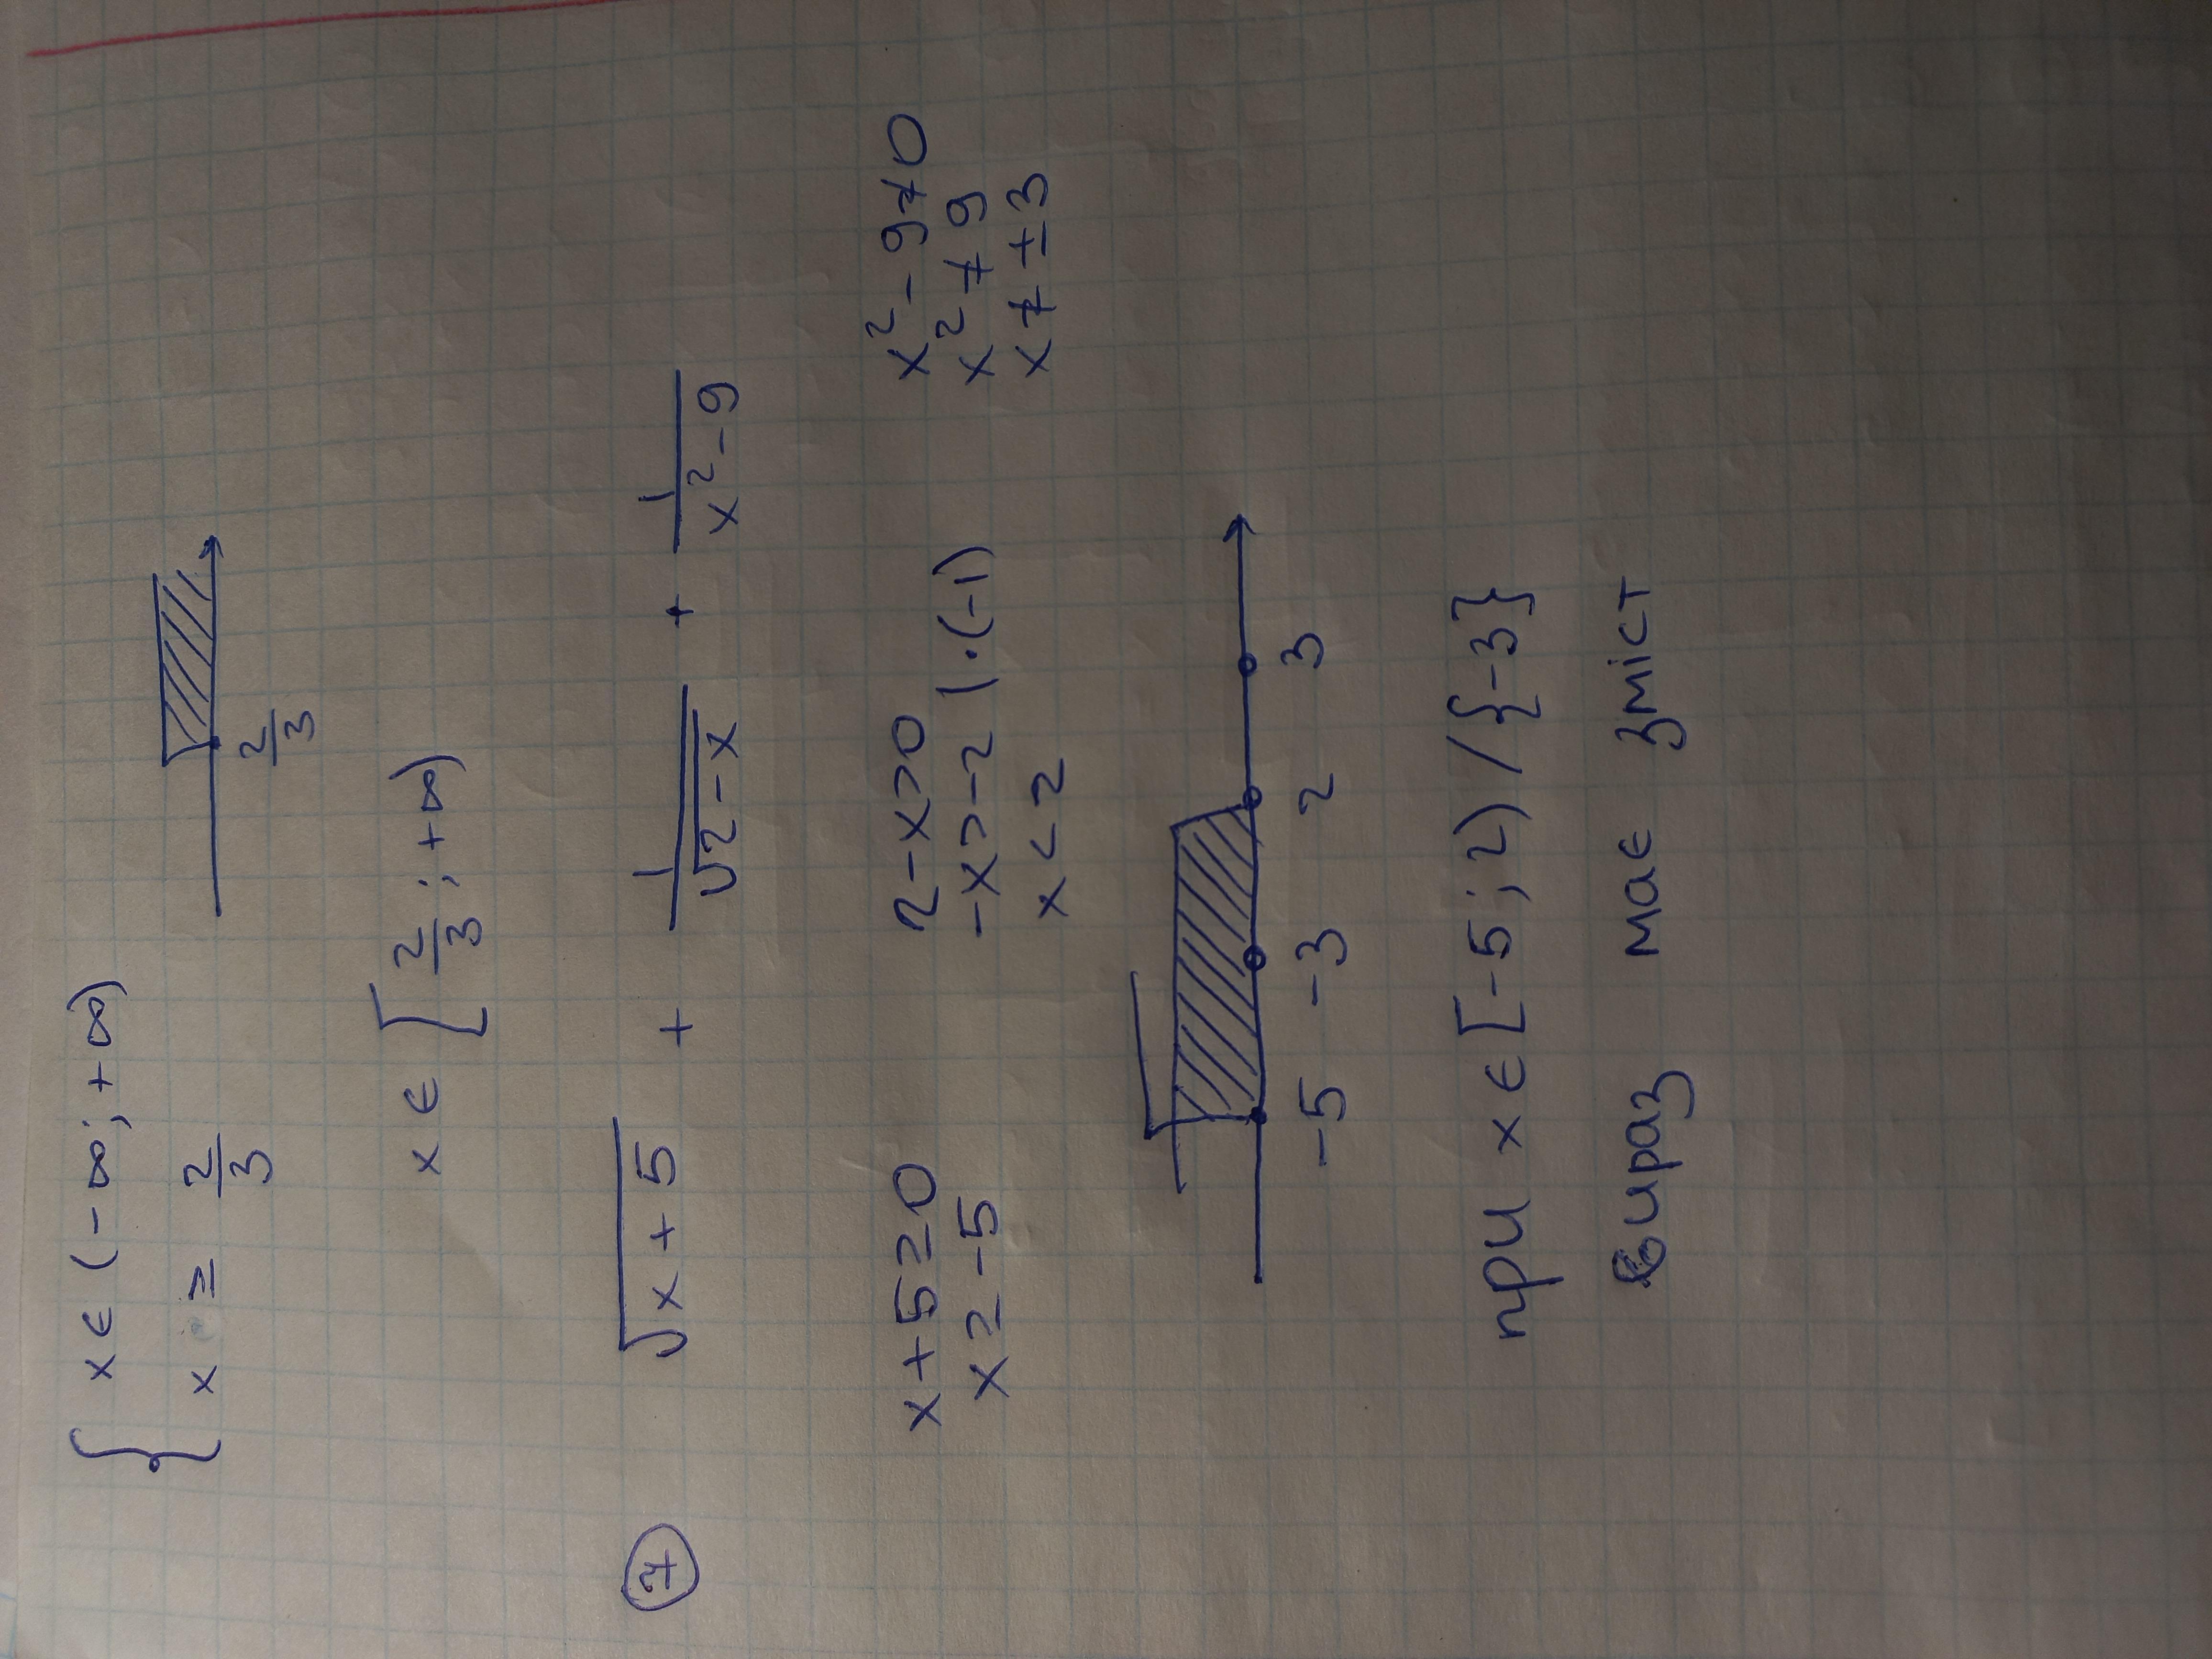 { x ∈ (-∞; +∞)
x ≥ 2/3
2/3
x ∈ [2/3; +∞)
7 √(x+5) + 1/√(2-x) + 1/(x²-9)
x+5≥0 2-x>0 x²-9≠0
x≥-5 -x>-2 |·(-1) x²≠9
x<2 x≠±3
-5 -3 2 3
при x∈[-5;2)/{-3}
вираз має зміст